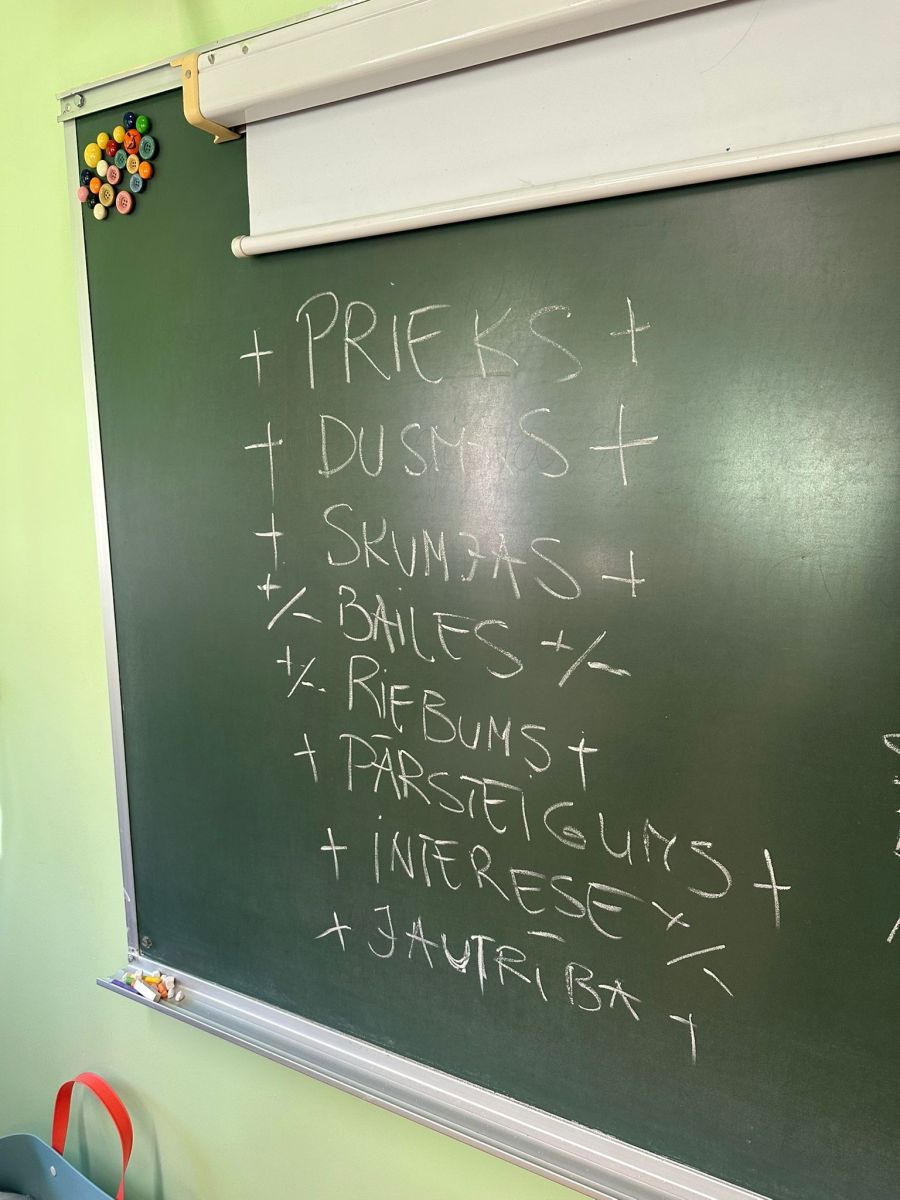 + PRIEKS +
+ DUSMAS +
+ SKUMJAS +
+/- BAILES +/-
+/- RIEBUMS +
+ PĀRSTEIGUMS +
+ INTERESE +/-
+ JAUTRĪBA +